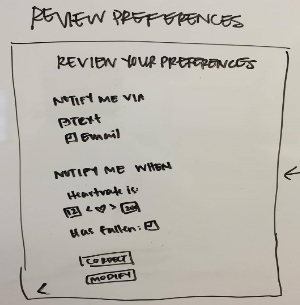 REVIEW PREFERENCES
REVIEW YOUR PREFERENCES
NOTIFY ME VIA
Text
Email
NOTIFY ME WHEN
Heartrate is:
< >
Has Fallen:
CORRECT
MODIFY
<